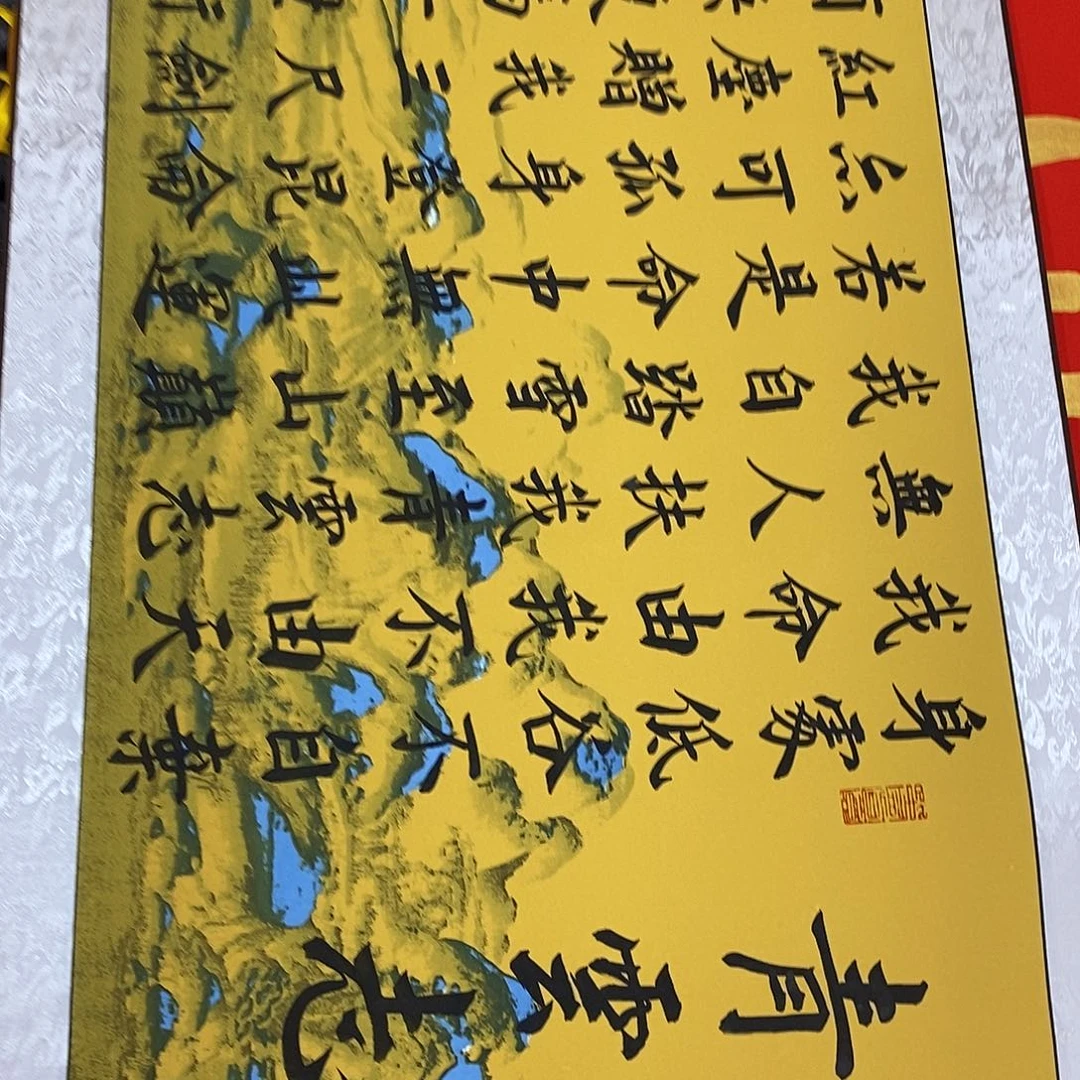 青雲志
身處低谷不自棄
我命由我不由天
無人扶我青雲志
我自踏雪至山巔
若是命中無此運
亦可孤身登昆侖
紅塵贈我三尺劍